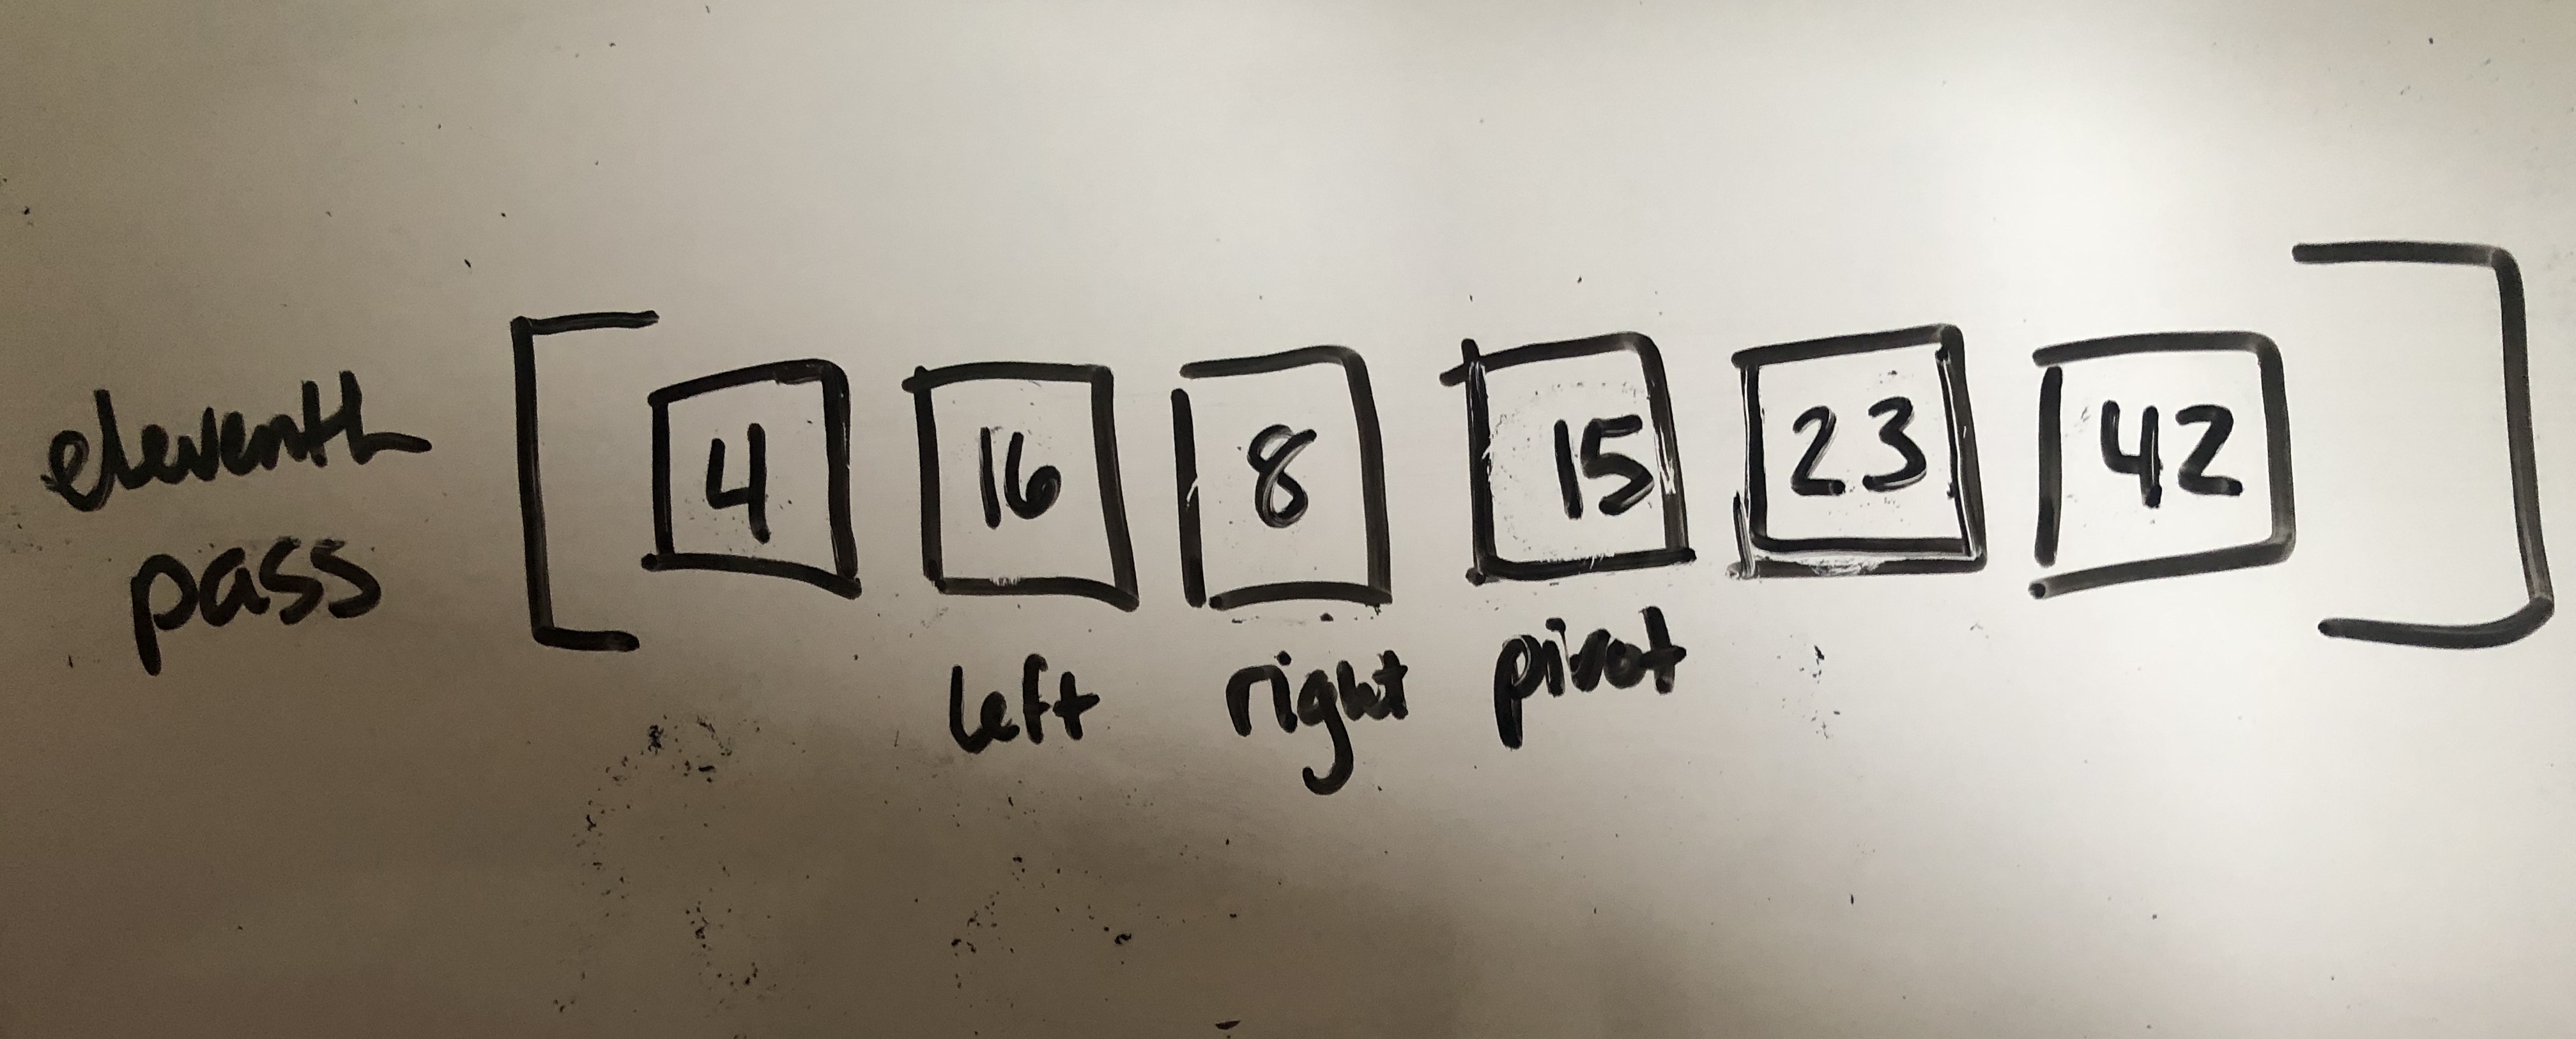 eleventh
pass
4 16 8 15 23 42
left right pivot